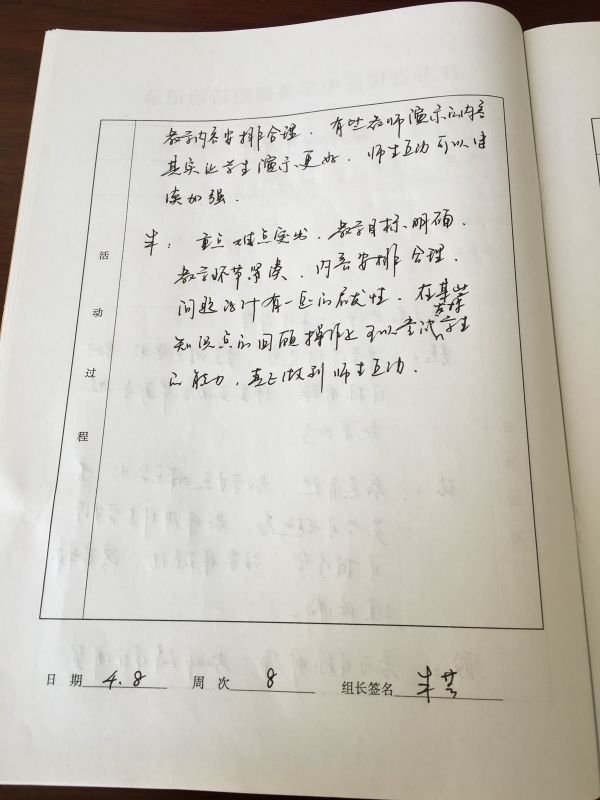 教学内容安排合理．有些教师演示的内容
其实让学生演示更好．师生互动可以继
续加强．
重点难点突出．教学目标明确．
教学环节紧凑．内容安排合理．
问题设计有一定的启发性．在某些
知识点的回顾操作上可以尝试发挥学生
的能力，真正做到师生互动．
活
动
过
程
日 期 4.8 周 次 8 组长签名